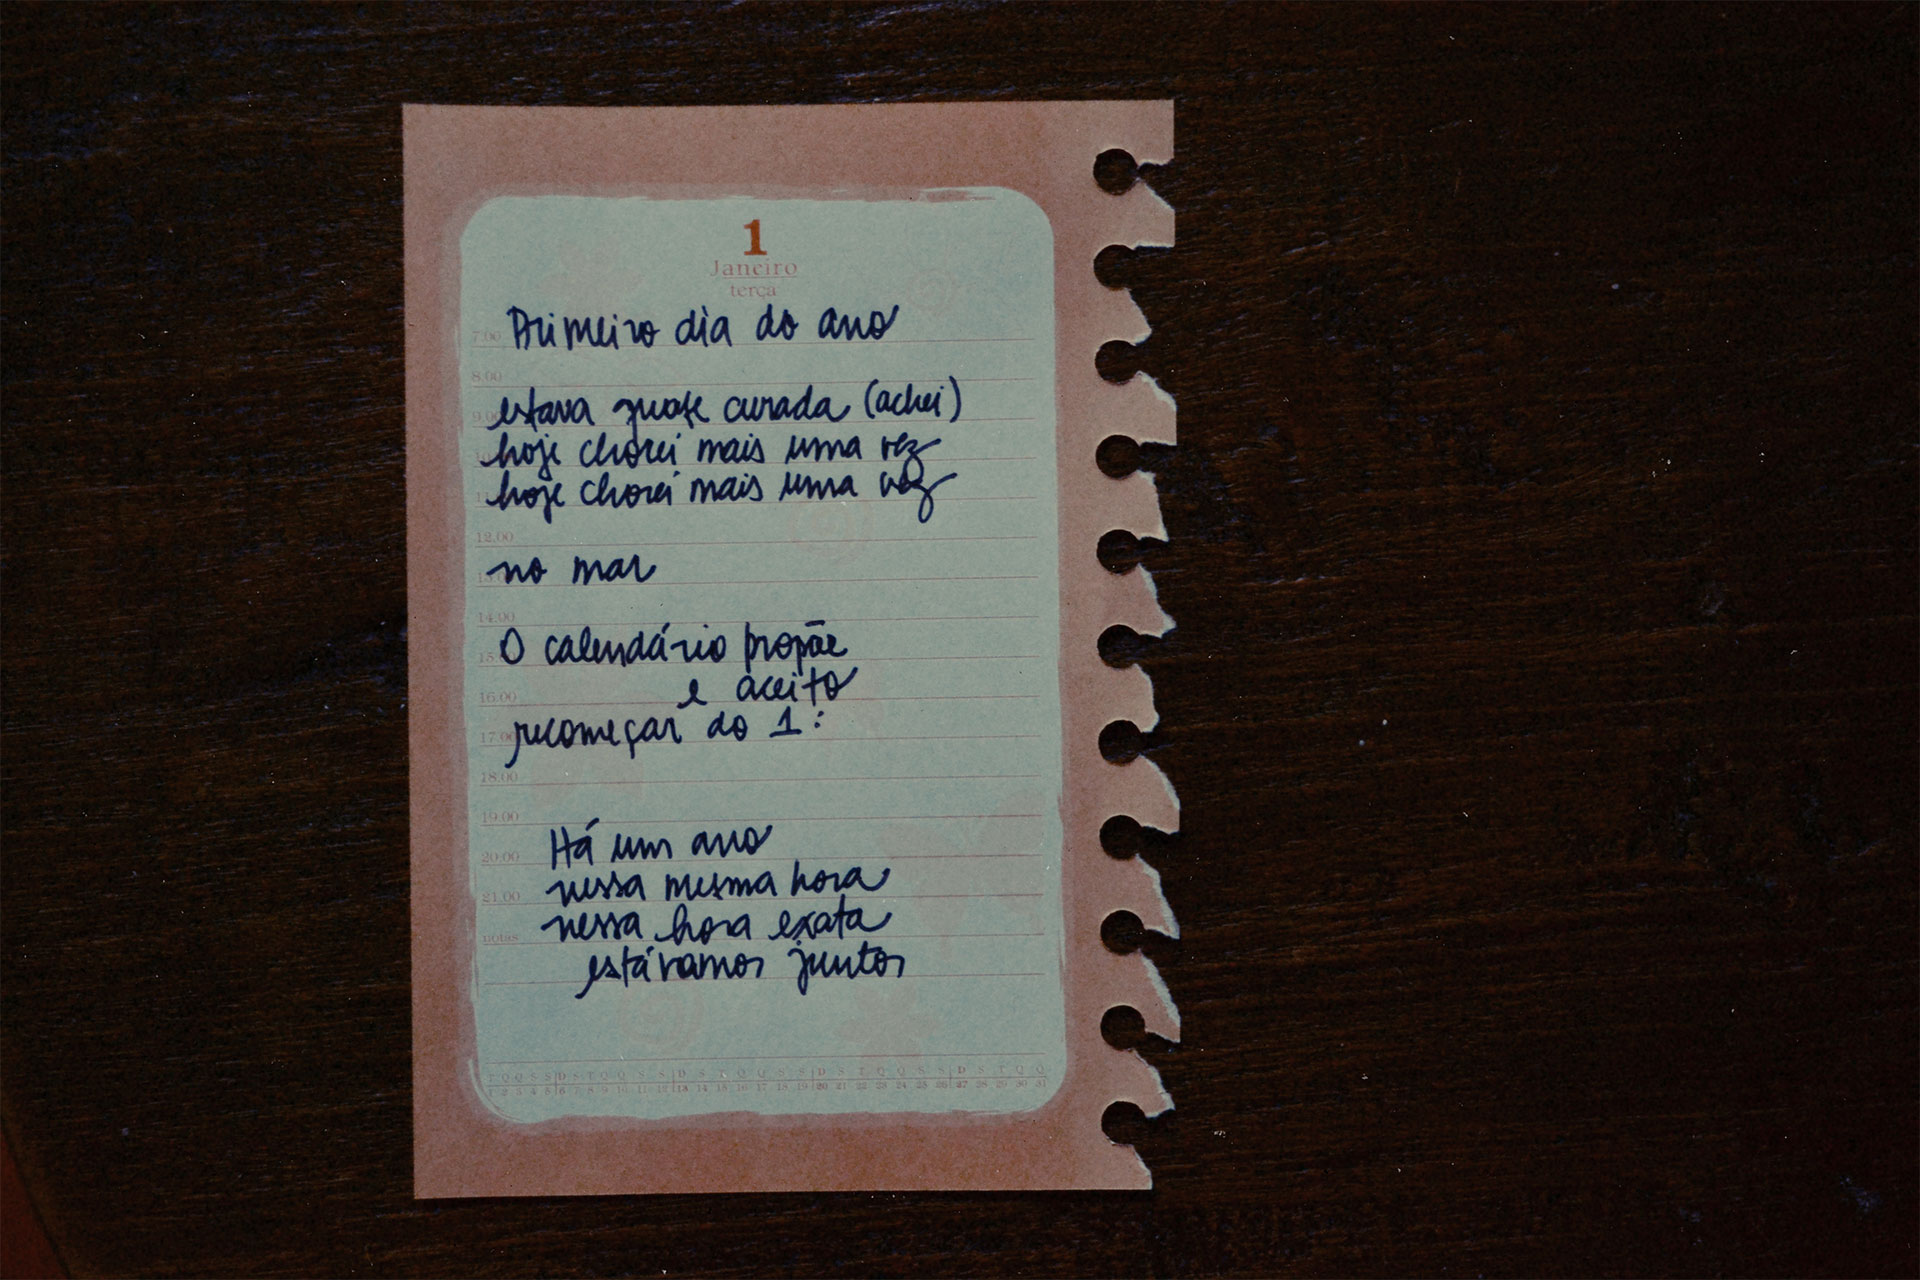 1
Janeiro
terça
7.00 Primeiro dia do ano
8.00
9.00 estava quase curada (achei)
hoje chorei mais uma vez
hoje chorei mais uma vez
12.00
13.00 no mar
14.00
15.00 O calendário propõe
16.00 e aceito
17.00 recomeçar do 1:
18.00
19.00
20.00 Há um ano
21.00 nessa mesma hora
notas nessa hora exata
estávamos juntos
T Q Q S S D S T Q Q S S D S T Q Q S S D S T Q Q S S D S T Q Q
1 2 3 4 5 6 7 8 9 10 11 12 13 14 15 16 17 18 19 20 21 22 23 24 25 26 27 28 29 30 31